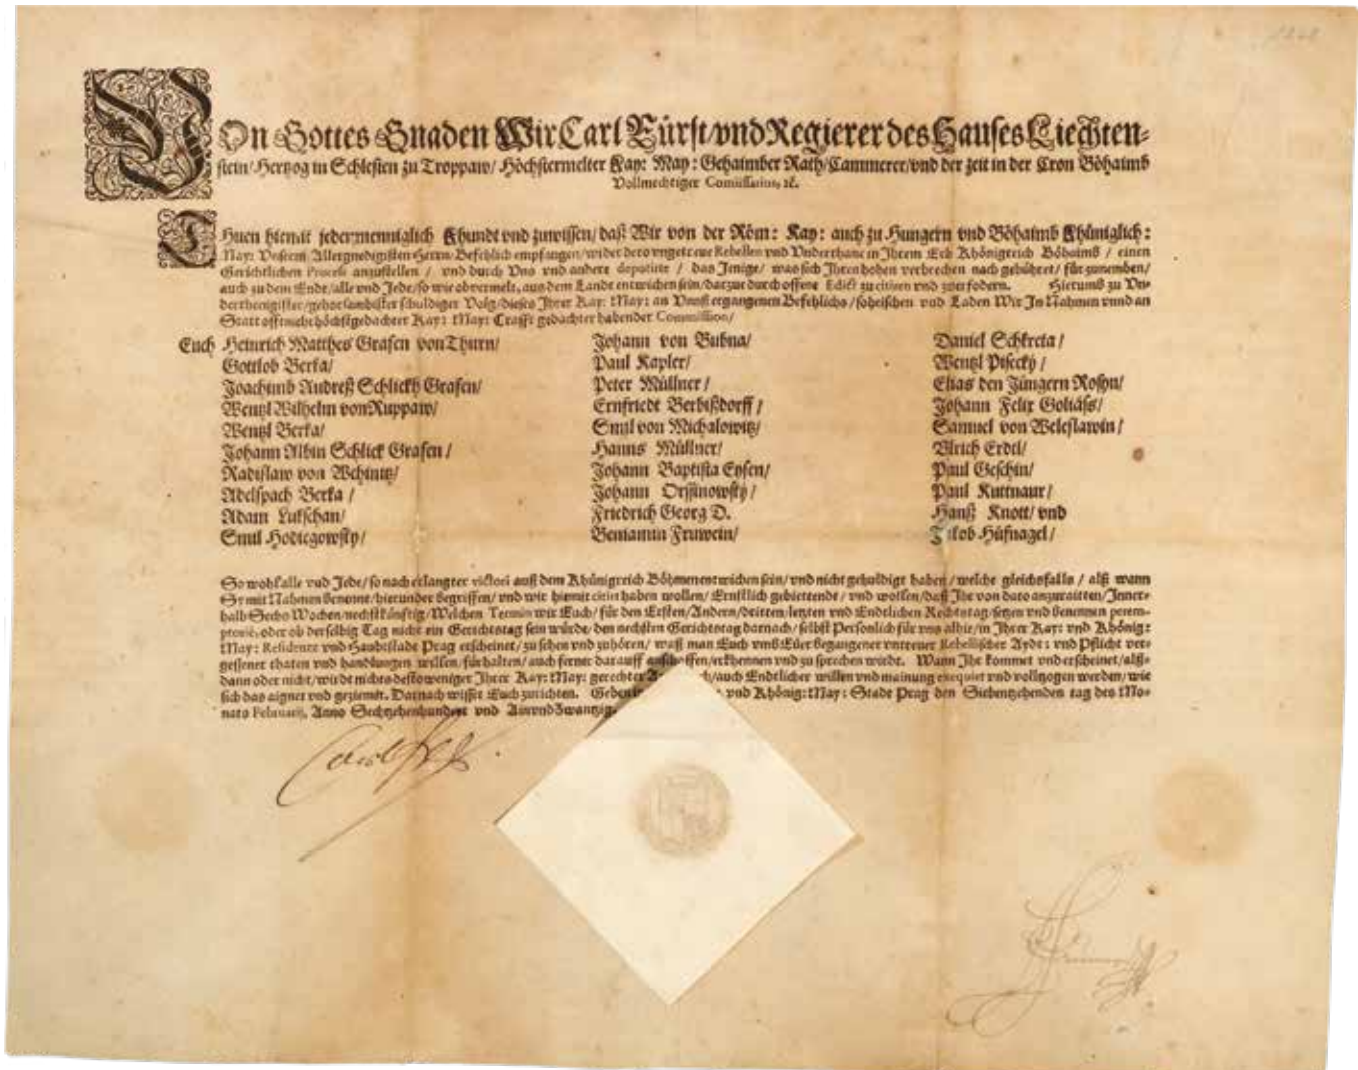 VOn Gottes Gnaden Wir Carl Fürst/vnd Regierer des Hauses Liechten-
stein/Hertzog in Schlesien zu Troppaw/Höchstermelter Kay: May: Gehaimber Rath/Cammerer/vnd der zeit in der Cron Böhaimb
Vollmechtiger Comissarius, ꝛc.
THuen hiemit jedermenniglich Khundt vnd zuwissen/daß Wir von der Röm: Kay: auch zu Hungern vnd Böhaimb Khüniglich:
May: Vnserm Allergnedigisten Herrn/Befehlich empfangen/wider dero vngetrewe Rebellen vnd Vnderthane in Ihrem Erb Khönigreich Böhaimb / einen
Gerichtlichen Process anzustellen / vnd durch Vns vnd andere deputirte / das Jenige/was sich Ihren hohen verbrechen nach gebühret/für zunemben/
auch zu dem Ende/alle vnd Jede/so wie obvermelt, aus dem Lande entwichen sein/darzue durch offene Edict zu citiren vnd zuerfodern. Hierumb zu Vn-
derthenigister/gehorsambister schuldiger Volg/dieses Ihrer Kay: May: an Vnnß ergangenen Befehlichs/so heischen vnd Laden Wir In Nahmen vnnd an
Statt offtnicht höchstgedachter Kay: May: Crafft gedachter habender Commission/
Euch Heinrich Matthes Grafen von Thurn/
Gottlob Berka/
Joachimb Andreß Schlickh Grafen/
Wentzl Wilhelm von Ruppaw/
Wentzl Berka/
Johann Albin Schlick Grafen /
Radislaw von Wchinitz/
Adelspach Berka /
Adam Lukschan/
Smil Hodiegowsky/
Johann von Bubna/
Paul Kapler/
Peter Müllner /
Ernfriedt Berbißdorff /
Smil von Michalowitz/
Hanns Müllner/
Johann Baptista Eysen/
Johann Orssinowsky/
Friedrich Georg D.
Beniamin Fruwein/
Daniel Schkreta/
Wentzl Pisecky /
Elias den Jüngern Rosyn/
Johann Felix Goliass/
Samuel von Weleslawin/
Vlrich Erdtl/
Paul Geschin/
Paul Kuttnaur/
Hanß Knott/ vnd
Jakob Hüfnagel/
So wohl alle vnd Jede/so nach erlangter victori auß dem Khünigreich Böhmen entwichen sein/vnd nicht gehuldigt haben/welche gleichsfalls / alß wann
Sy mit Nahmen Benennt/hierunder begriffen/vnd wir hiemit citirt haben wollen/Ernstlich gebiettende/vnd wollen/daß Ihr von dato anzuraitten/Inner-
halb Sechs Wochen/nechstkünftig/Welchen Termin wir Euch/für den Ersten/Andern/dritten/letzten vnd Endtlichen Rechtstag/setzen vnd benennen perem-
ptorie, oder ob derselbig Tag nicht ein Gerichtstag sein würde/den nechsten Gerichtstag darnach/selbst Persönlich für vns alhie/in Ihrer Kay: vnd Khönig:
May: Residentz vnd Haubtstade Prag erscheinet/zu sehen vnd zuhören/waß man Euch vmb Eüer begangener vntreuer Rebellischer Ayds: vnd Pflicht ver-
gessener thaten vnd handlungen willen/fürhalten/auch ferner darauff erkhennen vnd zu sprechen würdt. Wann Ihr kommet vnd erscheinet/alß-
dann oder nicht/wirdt nichts desto weniger Ihrer Kay: May: gerechter /auch Endtlicher willen vnd mainung exequirt vnd vollzogen werden/wie
sich das aignet vnd geziemt. Darnach wisset Euch zurichten. Geben vnd Khönig: May: Stade Prag den Siebentzehenden tag des Mo-
nats Februarij, Anno Sechtzehenhundert vnd Ainvnd Zwantzig.